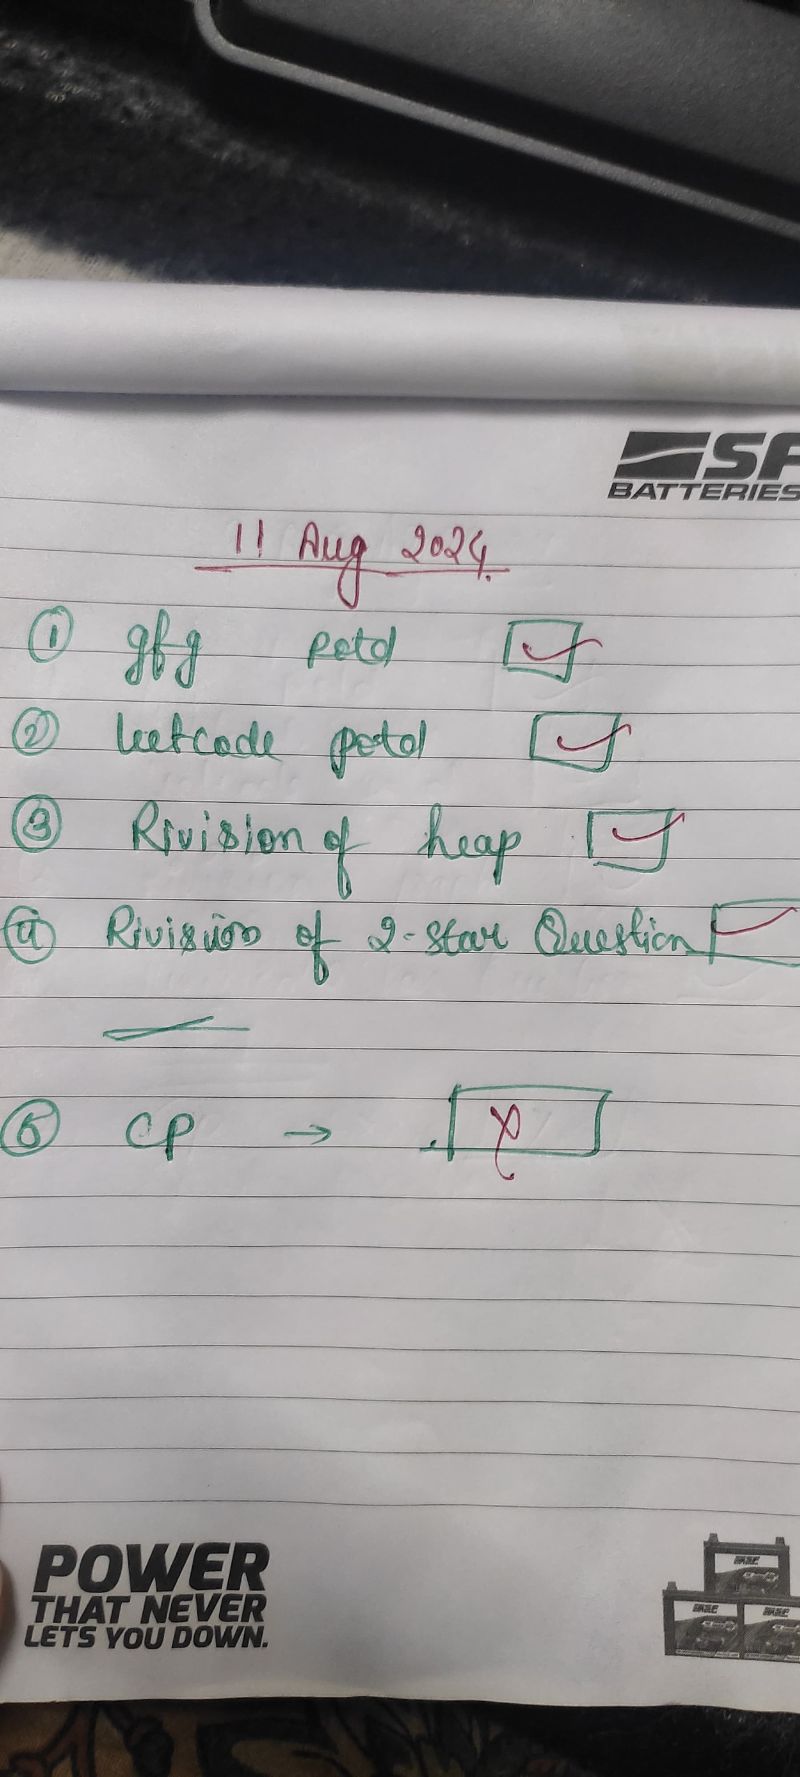 SF
BATTERIES
11 Aug 2024.
① gfg potd
② leetcode potd
③ Rivision of heap
④ Rivision of 2-star Question
⑤ CP →
POWER
THAT NEVER
LETS YOU DOWN.